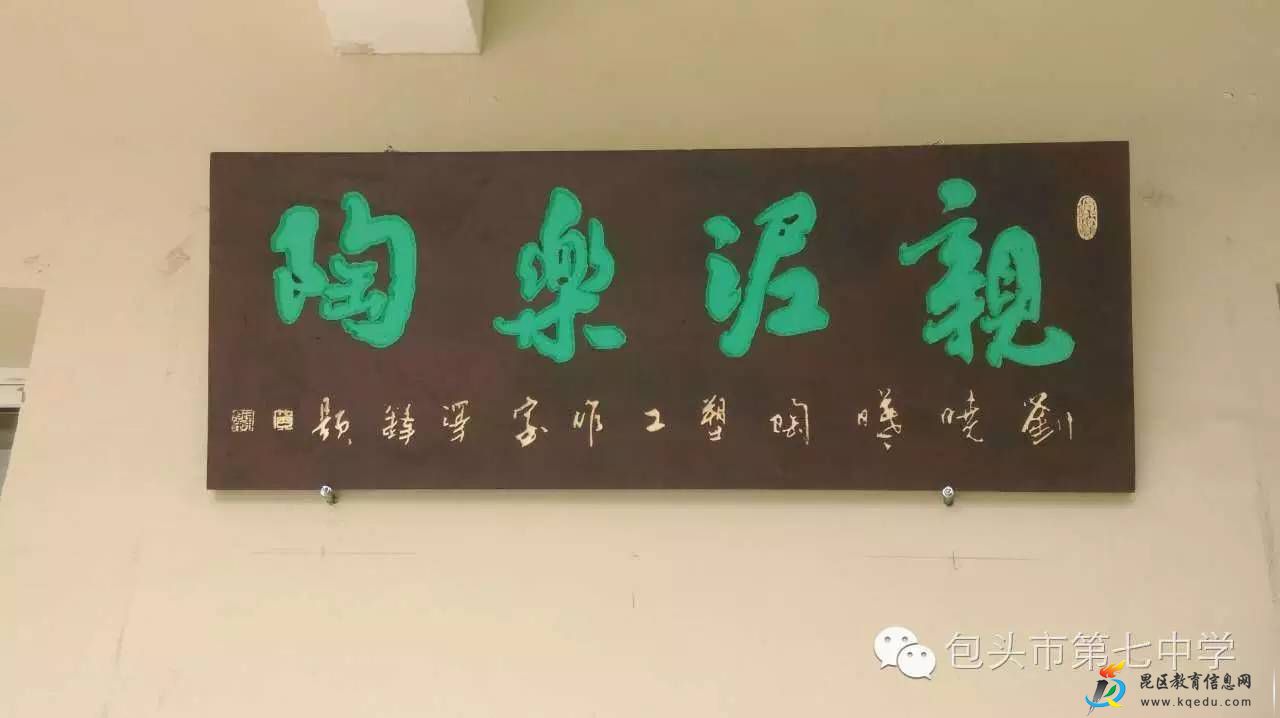 親泥樂陶
劉曉曦陶塑工作室 鋒題
包头市第七中学
昆区教育信息网
www.kqedu.com